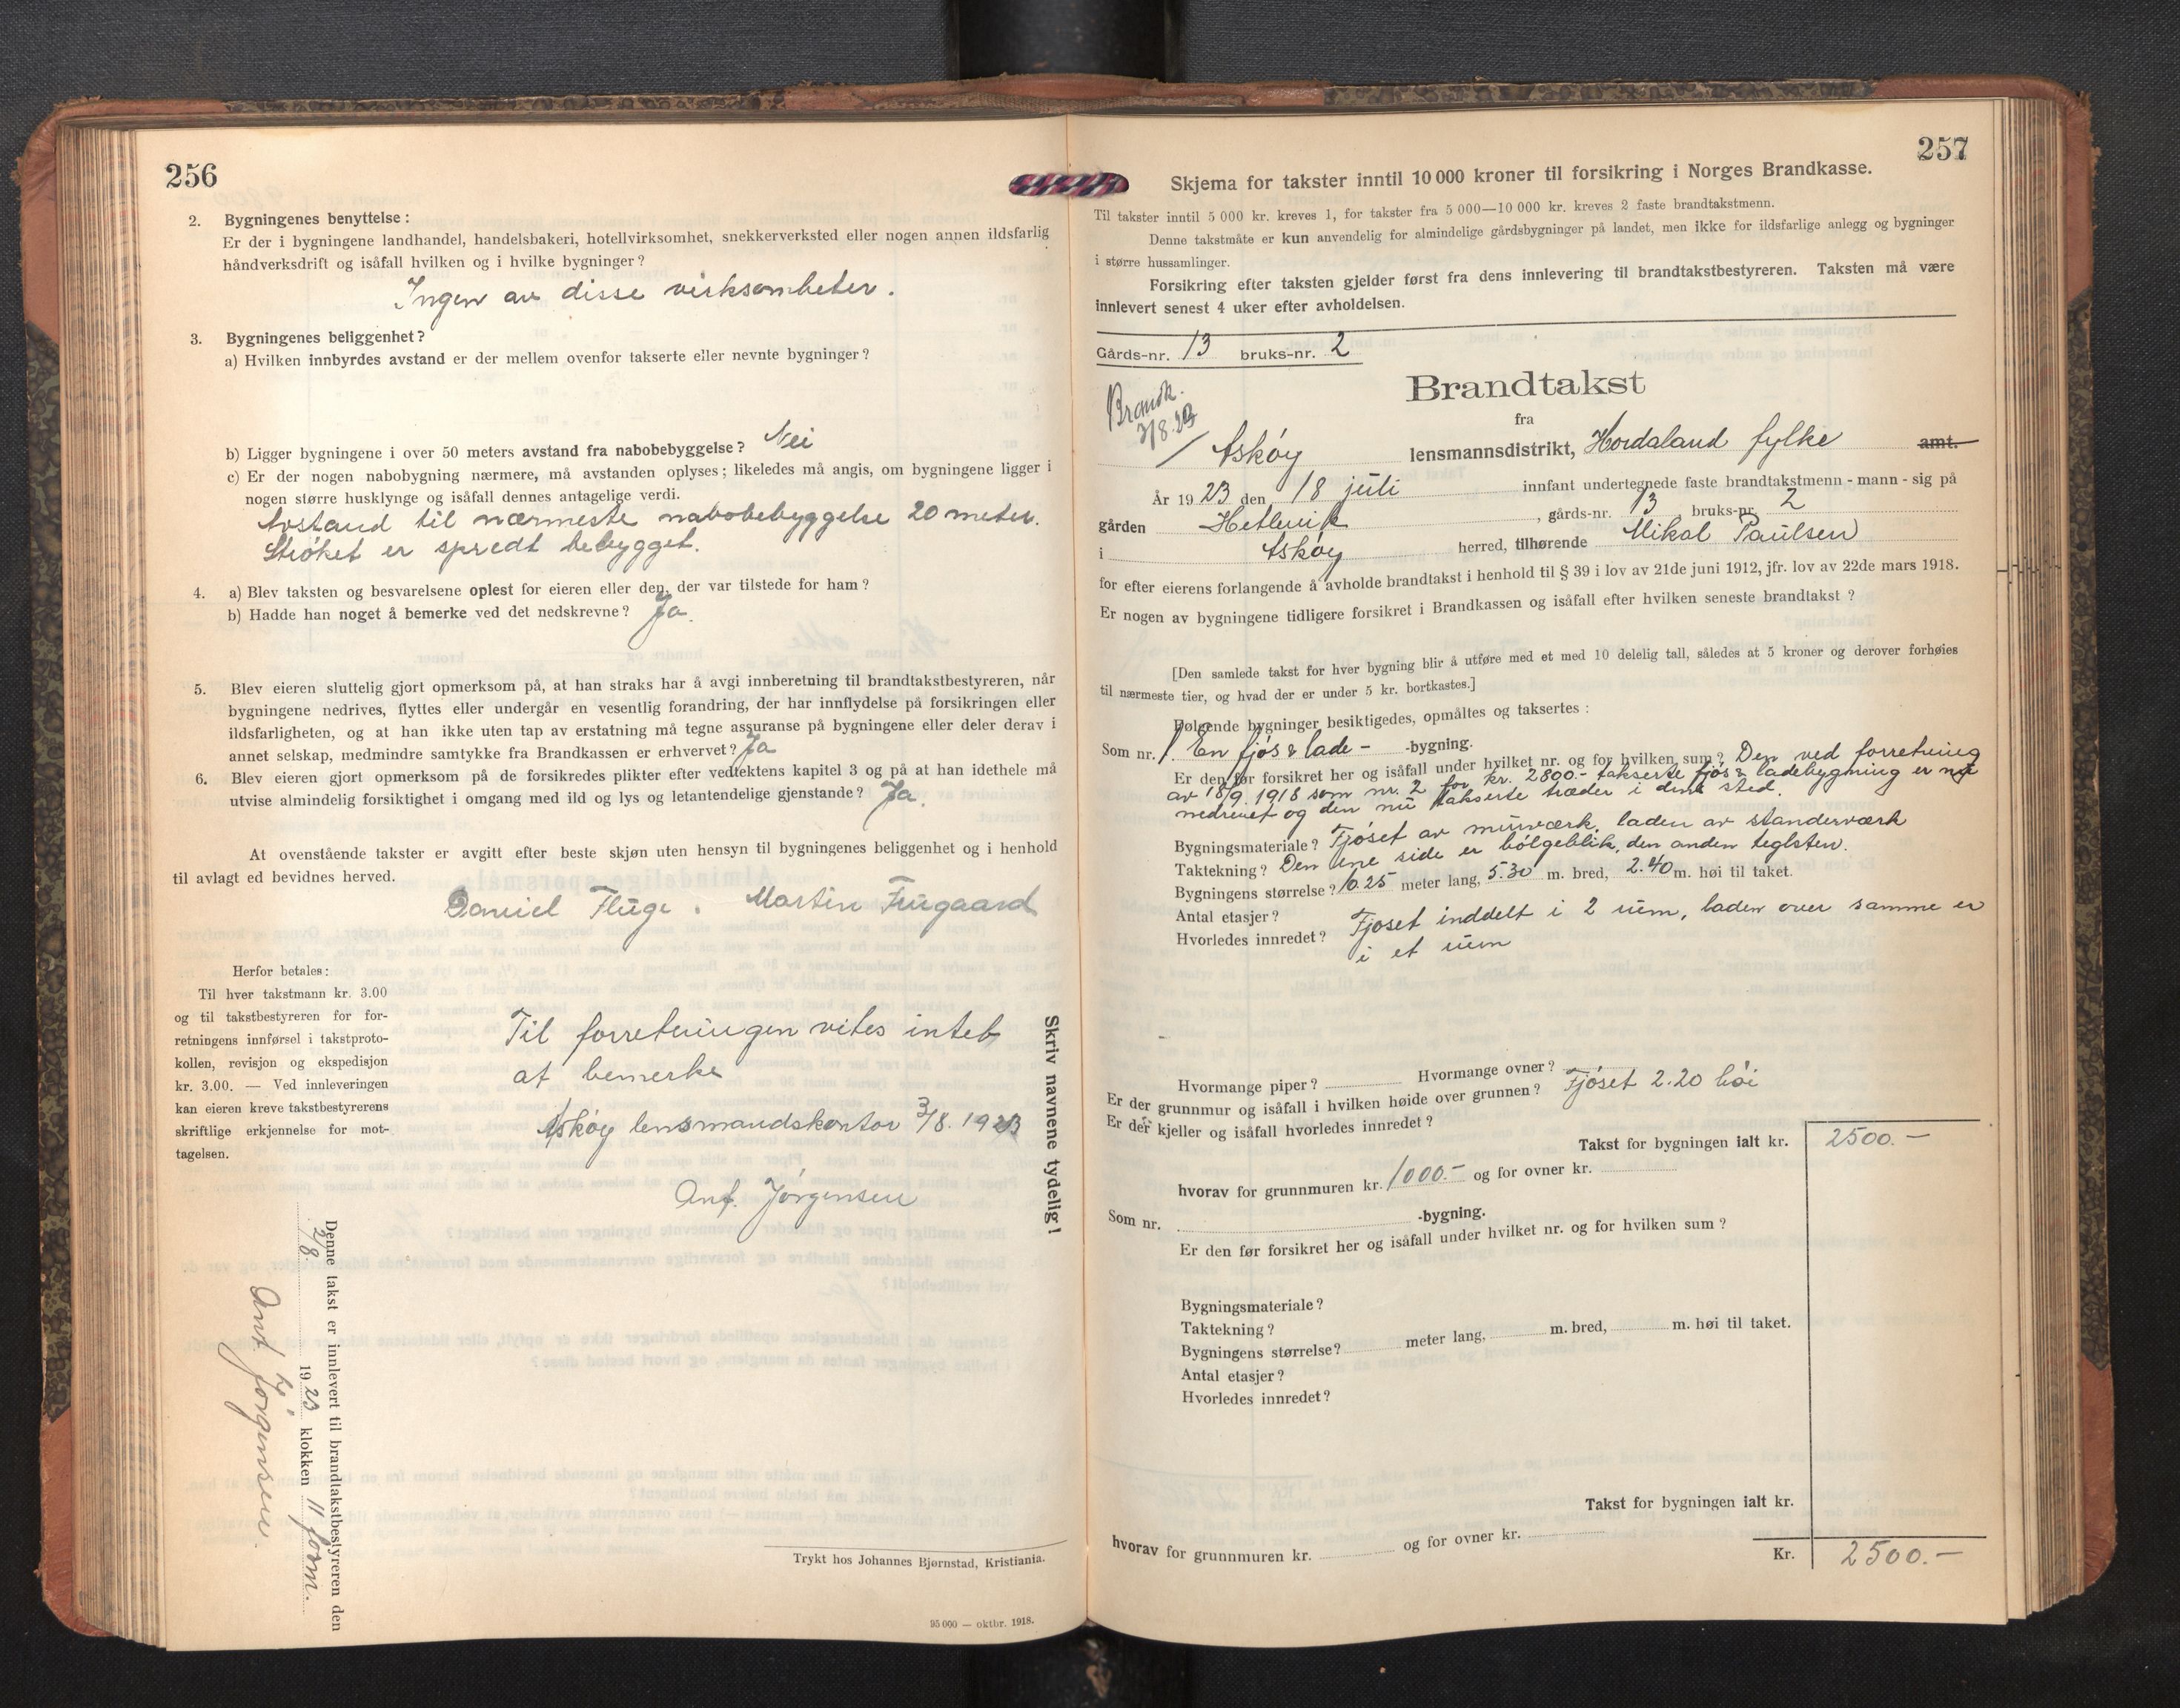 256
2. Bygningenes benyttelse :
Er der i bygningene landhandel, handelsbakeri, hotellvirksomhet, snekkerverksted eller nogen annen ildsfarlig
håndverksdrift og isåfall hvilken og i hvilke bygninger ?
Ingen av disse virksomheter.
3. Bygningenes beliggenhet ?
a) Hvilken innbyrdes avstand er der mellem ovenfor takserte eller nevnte bygninger ?
b) Ligger bygningene i over 50 meters avstand fra nabobebyggelse ? Nei
c) Er der nogen nabobygning nærmere, må avstanden oplyses ; likeledes må angis, om bygningene ligger i
nogen større husklynge og isåfall dennes antagelige verdi.
Avstand til nærmeste nabobebyggelse 20 meter.
Strøket er spredt bebygget.
4. a) Blev taksten og besvarelsene oplest for eieren eller den, der var tilstede for ham ?
b) Hadde han noget å bemerke ved det nedskrevne ? Ja.
5. Blev eieren sluttelig gjort opmerksom på, at han straks har å avgi innberetning til brandtakstbestyreren, når
bygningene nedrives, flyttes eller undergår en vesentlig forandring, der har innflydelse på forsikringen eller
ildsfarligheten, og at han ikke uten tap av erstatning må tegne assuranse på bygningene eller deler derav i
annet selskap, medmindre samtykke fra Brandkassen er erhvervet ? Ja
6. Blev eieren gjort opmerksom på de forsikredes plikter efter vedtektens kapitel 3 og på at han idethele må
utvise almindelig forsiktighet i omgang med ild og lys og letantendelige gjenstande ? Ja.
At ovenstående takster er avgitt efter beste skjøn uten hensyn til bygningenes beliggenhet og i henhold
til avlagt ed bevidnes herved.
Daniel Fluge. Martin Frugaard
Herfor betales :
Til hver takstmann kr. 3.00
og til takstbestyreren for for-
retningens innførsel i takstproto-
kollen, revisjon og ekspedisjon
kr. 3.00. — Ved innleveringen
kan eieren kreve takstbestyrerens
skriftlige erkjennelse for mot-
tagelsen.
Til forretningen vites intet
at bemerke
Askøy lensmandskontor 3/8. 1923
Ant. Jørgensen
Skriv navnene tydelig !
Denne takst er innlevert til brandtakstbestyreren den
2/8. 1923 klokken 11 form.
Ant. Jørgensen.
Trykt hos Johannes Bjørnstad, Kristiania.
95 000 — oktbr. 1918.
257
Skjema for takster inntil 10 000 kroner til forsikring i Norges Brandkasse.
Til takster inntil 5 000 kr. kreves 1, for takster fra 5 000—10 000 kr. kreves 2 faste brandtakstmenn.
Denne takstmåte er kun anvendelig for almindelige gårdsbygninger på landet, men ikke for ildsfarlige anlegg og bygninger
i større hussamlinger.
Forsikring efter taksten gjelder først fra dens innlevering til brandtakstbestyreren. Taksten må være
innlevert senest 4 uker efter avholdelsen.
Gårds-nr. 13 bruks-nr. 2
Brandtakst
Brandk.
3/8.23
fra
Askøy lensmannsdistrikt, Hordaland fylke amt.
År 1923 den 18 juli innfant undertegnede faste brandtakstmenn - mann - sig på
gården Hetlevik, gårds-nr. 13, bruks-nr. 2
i Askøy herred, tilhørende Mikal Paulsen
for efter eierens forlangende å avholde brandtakst i henhold til § 39 i lov av 21de juni 1912, jfr. lov av 22de mars 1918.
Er nogen av bygningene tidligere forsikret i Brandkassen og isåfall efter hvilken seneste brandtakst ?
[Den samlede takst for hver bygning blir å utføre med et med 10 delelig tall, således at 5 kroner og derover forhøies
til nærmeste tier, og hvad der er under 5 kr. bortkastes.]
Følgende bygninger besiktigedes, opmåltes og taksertes :
Som nr. 1. En fjøs & lade - -bygning.
Er den før forsikret her og isåfall under hvilket nr. og for hvilken sum ? Den ved forretning
av 18/9. 1918 som nr. 2 for kr. 2800.- takserte fjøs & ladebygning er nu
nedrevet og den nu takserte træder i dens sted.
Bygningsmateriale ? Fjøset av murværk, laden av standerværk
Taktekning ? Den ene side er bølgeblik, den anden teglsten.
Bygningens størrelse ? 10.25 meter lang, 5.30 m. bred, 2.40 m. høi til taket.
Antal etasjer ?
Hvorledes innredet ? Fjøset inddelt i 2 rum, laden over samme er
i et rum
Hvormange piper ? Hvormange ovner ?
Er der grunnmur og isåfall i hvilken høide over grunnen ? Fjøset 2.20 høi
Er der kjeller og isåfall hvorledes innredet ?
Takst for bygningen ialt kr. 2500.—
hvorav for grunnmuren kr. 1000.- og for ovner kr.
Som nr. -bygning.
Er den før forsikret her og isåfall under hvilket nr. og for hvilken sum ?
Bygningsmateriale ?
Taktekning ?
Bygningens størrelse ? meter lang, m. bred, m. høi til taket.
Antal etasjer ?
Hvorledes innredet ?
Takst for bygningen ialt kr.
hvorav for grunnmuren kr. og for ovner kr.
Kr. 2500.—